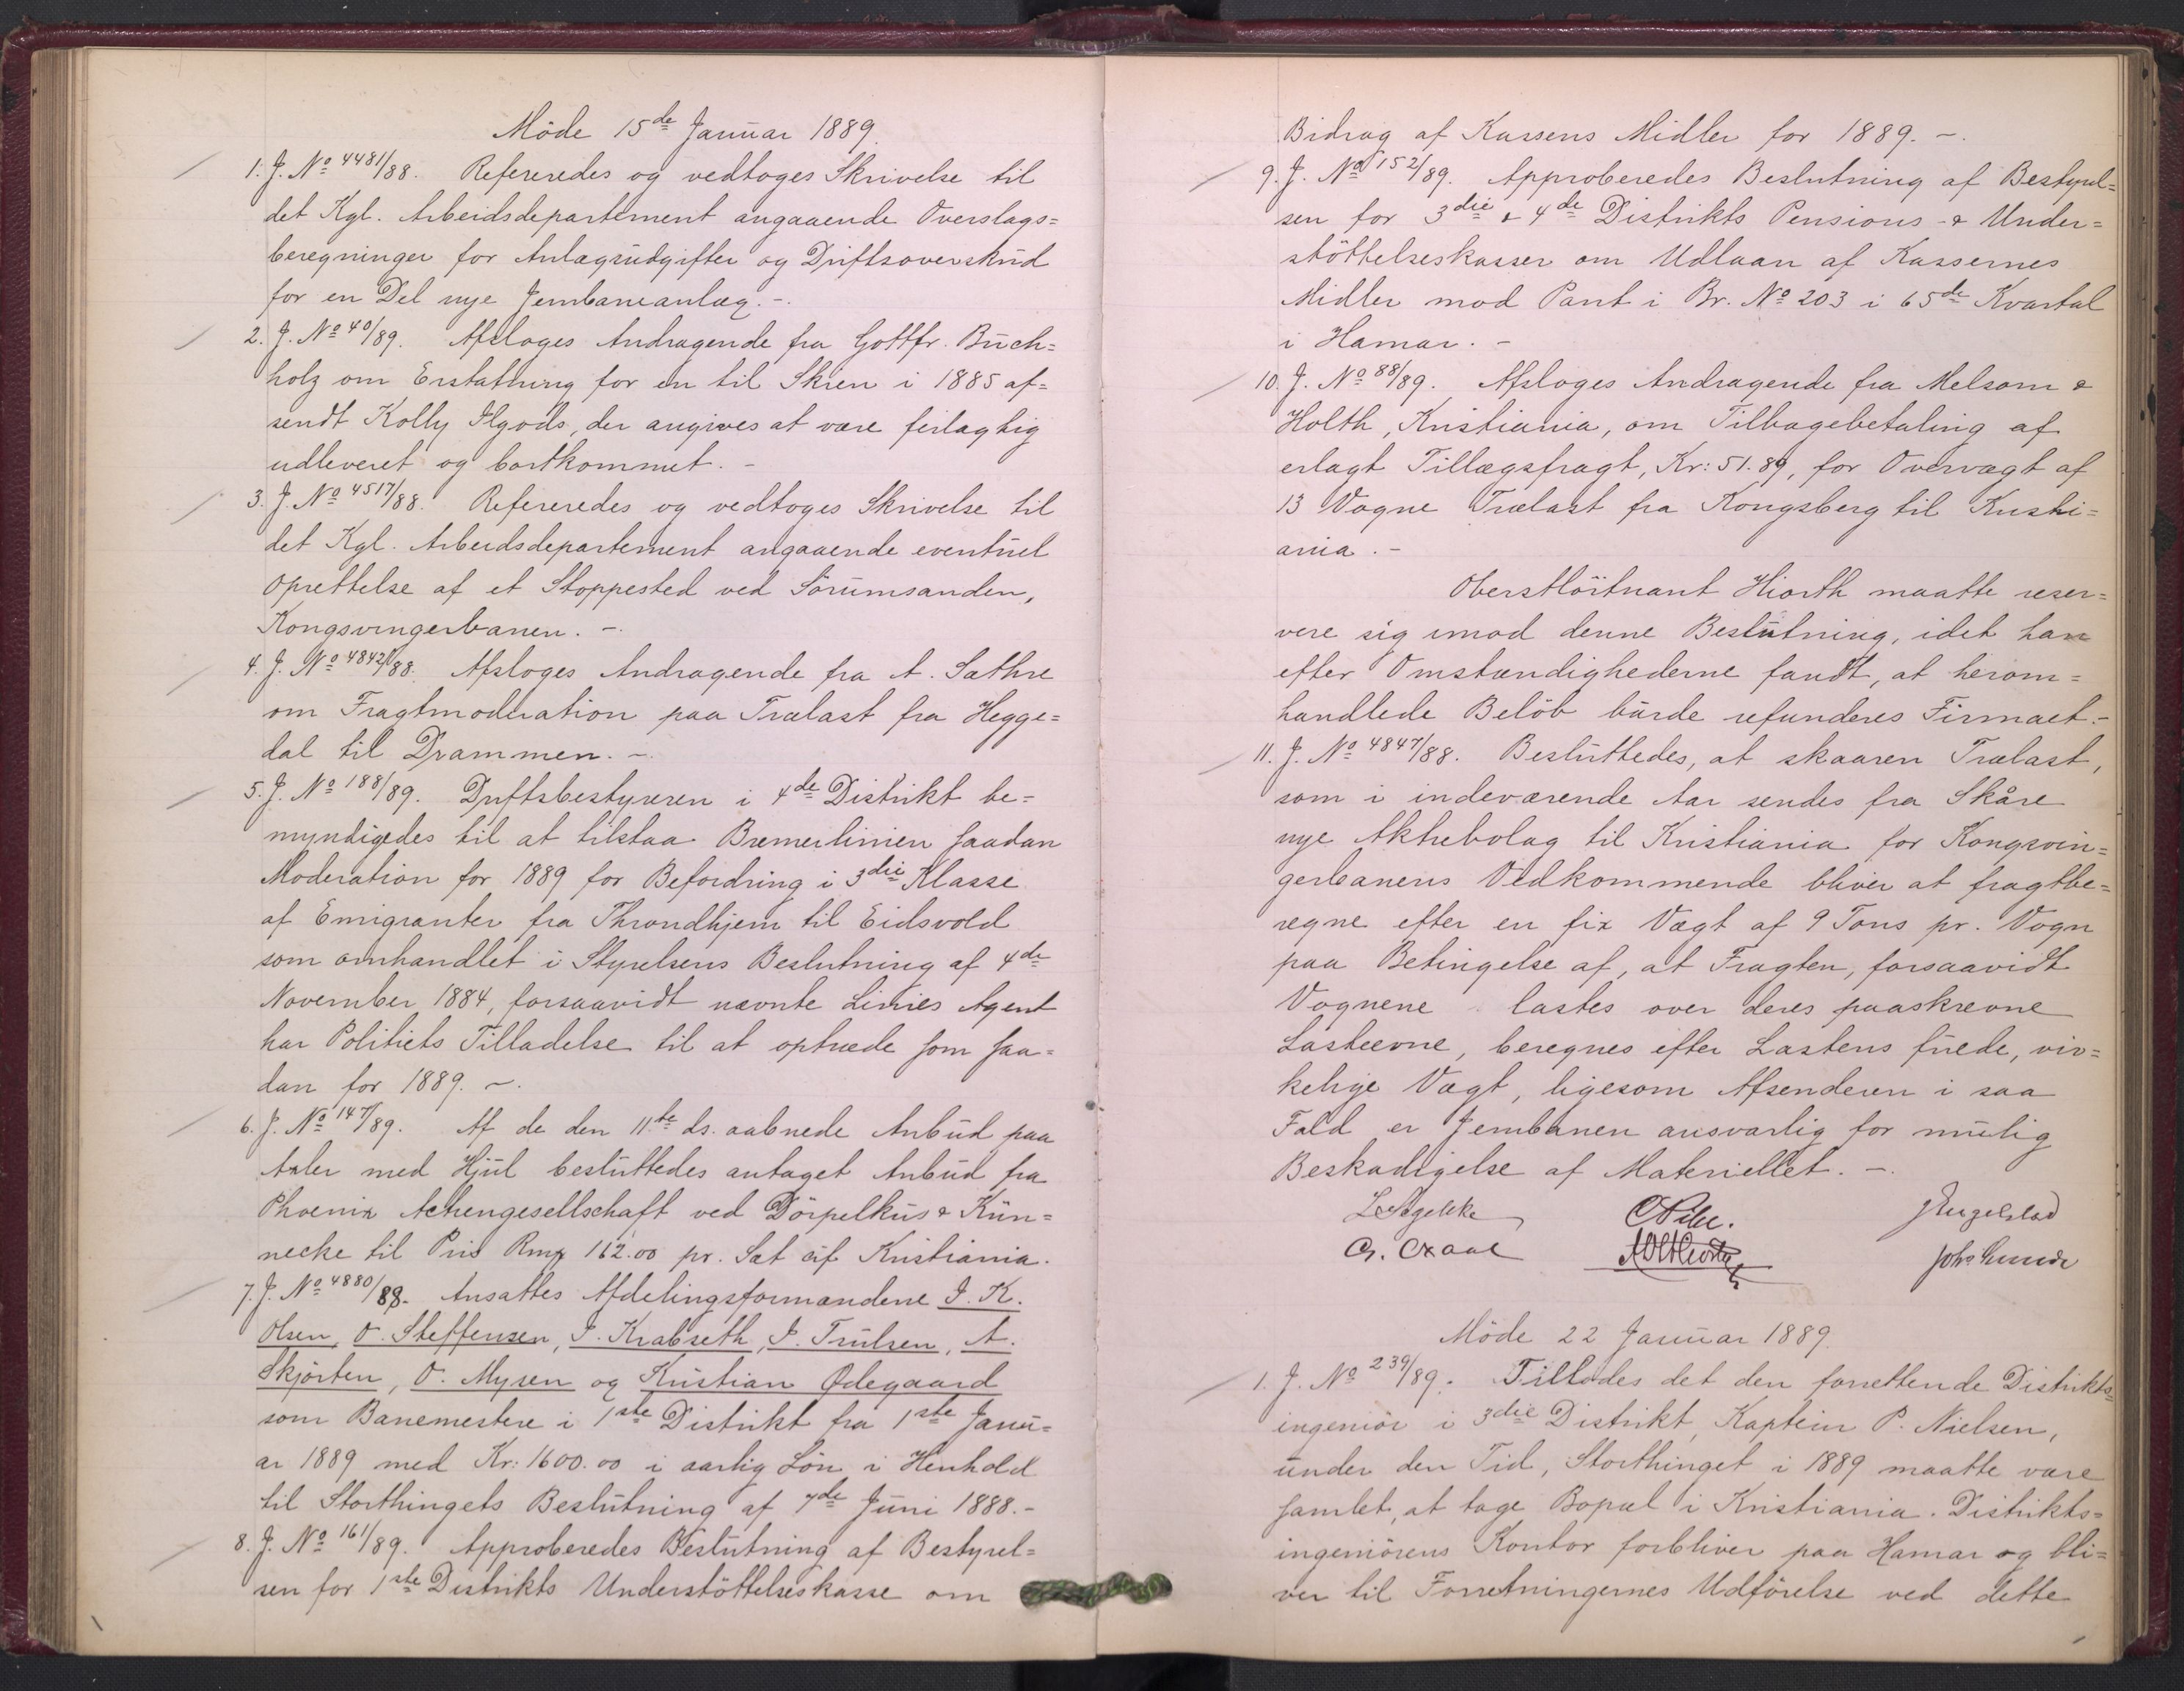 Möde 15de Januar 1889.
1. J. No 4481/88. Refereredes og vedtoges Skrivelse til
det Kgl. Arbeidsdepartement angaaende Overslags=
beregninger for Anlægsudgifter og Driftsoverskud
for en Del nye Jernbaneanlæg. -
2. J. No 40/89. Afsloges Andragende fra Gottfr. Buch=
holz om Erstatning for en til Skien i 1885 af=
sendt Kolly Ilgods, der angives at være feilagtig
udleveret og bortkommet. -
3. J. No 4517/88. Refereredes og vedtoges Skrivelse til
det Kgl. Arbeidsdepartement angaaende eventuel
Oprettelse af et Stoppested ved Sörumsanden,
Kongsvingerbanen. -
4. J. No 4842/88. Afsloges Andragende fra A. Sæthre
om Fragtmoderation paa Trælast fra Hegge=
dal til Drammen. -
5. J. No 188/89. Driftsbestyreren i 4de Distrikt be=
myndigedes til at tilstaa Bremerlinien saadan
Moderation for 1889 for Befordring i 3die Klasse
af Emigranter fra Throndhjem til Eidsvold
som omhandlet i Styrelsens Beslutning af 4de
November 1884, forsaavidt nævnte Linies Agent
har Politiets Tilladelse til at optræde som saa=
dan for 1889. -
6. J. No 147/89. Af de den 11te ds. aabnede Anbud paa
Axler med Hjul besluttedes antaget Anbud fra
Phoenix Actiengesellschaft ved Dörpelkus & Kün=
necke til Pris Rmk 162.00 pr. Sæt cif Kristiania.
7. J. No 4880/88. Ansattes Afdelingsformændene I. K.
Olsen, O. Steffensen, I. Krabseth, I. Trulsen, A.
Skjörten, O. Mysen og Kristian Ødegaard
som Banemestere i 1ste Distrikt fra 1ste Janu=
ar 1889 med Kr: 1600.00 i aarlig Lön i Henhold
til Storthingets Beslutning af 7de Juni 1888. -
8. J. No 161/89. Approberedes Beslutning af Bestyrel=
sen for 1ste Distrikts Understöttelseskasse om
Bidrag af Kassens Midler for 1889. -
9. J. No 152/89. Approberedes Beslutning af Bestyrel=
sen for 3die & 4de Distrikts Pensions- & Under=
stöttelseskasser om Udlaan af Kassernes
Midler mod Pant i Br. No 203 i 65de Kvartal
i Hamar. -
10. J. No 88/89. Afsloges Andragende fra Melsom &
Holth, Kristiania, om Tilbagebetaling af
erlagt Tillægsfragt, Kr: 51.89, for Overvægt af
13 Vogne Trælast fra Kongsberg til Kristi=
ania. -
Oberstlöitnant Hiorth maatte reser=
vere sig imod denne Beslutning, idet han
efter Omstændighederne fandt, at herom=
handlede Belöb burde refunderes Firmaet. -
11. J. No 4847/88. Besluttedes, at skaaren Trælast,
som i indeværende Aar sendes fra Skåre
nye Aktiebolag til Kristiania for Kongsvin=
gerbanens Vedkommende bliver at fragtbe=
regne efter en fix Vægt af 9 Tons pr. Vogn
paa Betingelse af, at Fragten, forsaavidt
Vognene lastes over deres paaskrevne
Lasteevne, beregnes efter Lastens fulde, vir=
kelige Vægt, ligesom Afsenderen i saa
Fald er Jernbanen ansvarlig for mulig
Beskadigelse af Materiellet. -
L Segelcke CPihl. JEngelstad
Möde 22 Januar 1889.
1. J. No 239/89. Tillodes det den forrettende Distrikts=
ingeniör i 3die Distrikt, Kaptein P. Nielsen,
under den Tid, Storthinget i 1889 maatte være
samlet, at tage Bopæl i Kristiania. Distrikts=
ingeniörens Kontor forbliver paa Hamar og bli=
ver til Forretningernes Udförelse ved dette